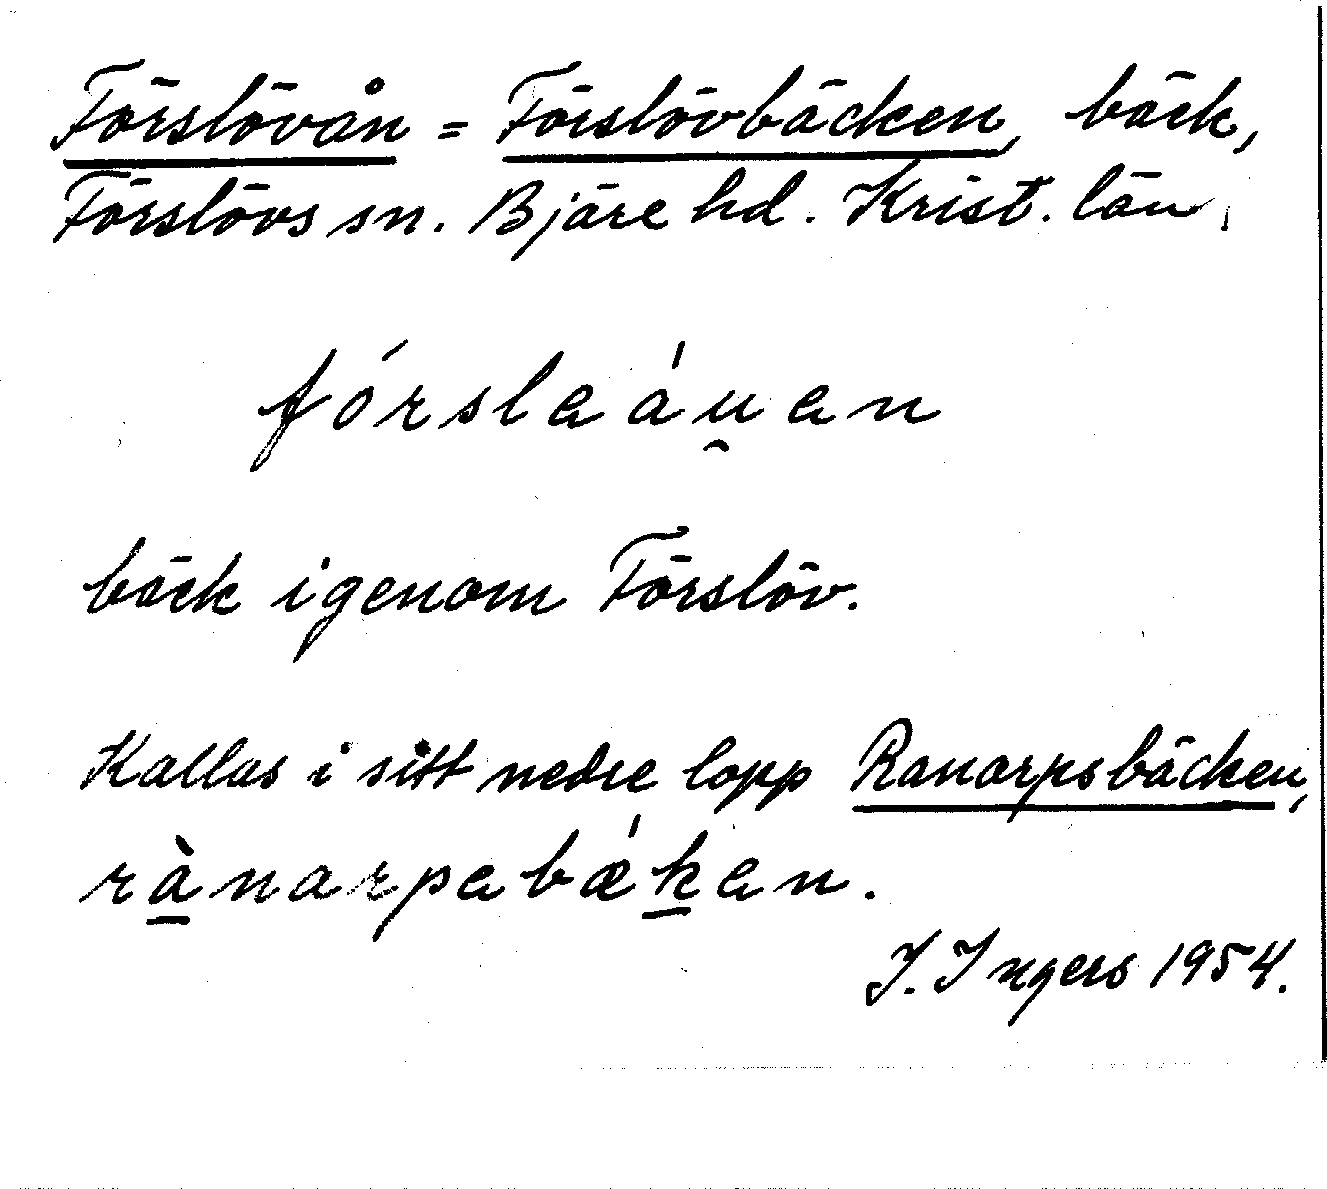 Förslövån = Förslövbäcken, bäck,
Förslövs sn. Bjäre hd. Krist. län.
fórsleáu̯en
bäck igenom Förslöv.
Kallas i sitt nedre lopp Ranarpsbäcken,
rà̱narpebǽḵen.
I. Ingers 1954.